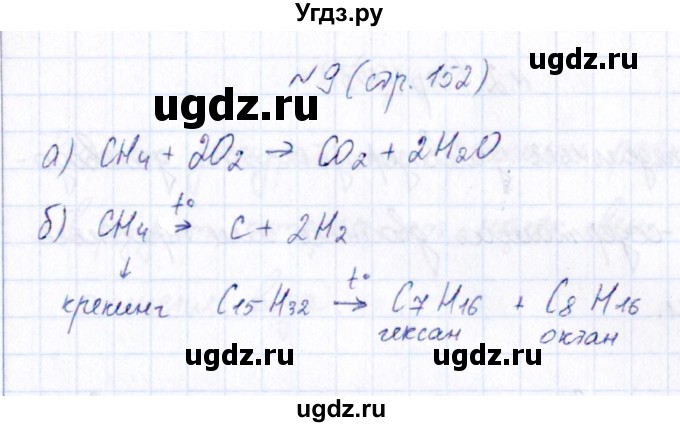 Угдз.ру
№9 (стр. 152)
ugdz.ru ugdz.ru
а) CH4 + 2O2 → CO2 + 2H2O
t°
б) CH4 → C + 2H2
ugdz.ru ugdz.ru
↓ t°
крекинг C15H32 → C7H16 + C8H16
гексан октан
ugdz.ru ugdz.ru
ugdz.ru